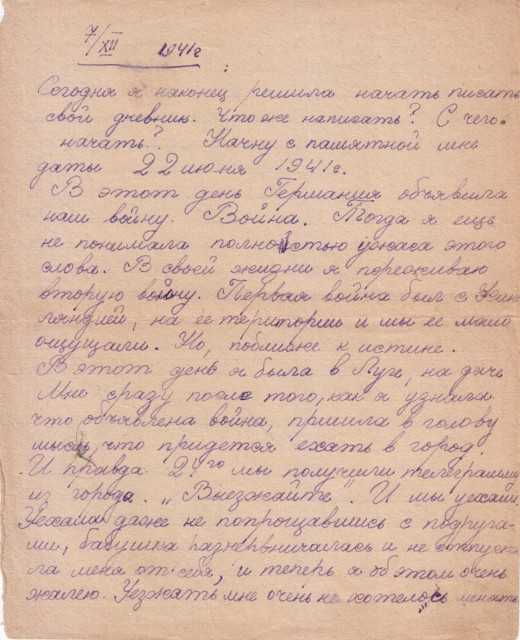 7/XII 1941г
Сегодня я наконец решила начать писать
свой дневник. Что же написать? С чего
начать? Начну с памятной мне
даты 22 июня 1941г.
В этот день Германия объявила
нам войну. Война. Тогда я еще
не понимала полностью ужаса этого
слова. В своей жизни я переживаю
вторую войну. Первая война был с Фин
ляндией, на ее територии и мы ее мало
ощущали. Но, поближе к истине.
В этот день я была в Луге, на даче
Мне сразу после того, как я узнала
что объявлена война, пришла в голову
мысль, что придется ехать в город.
И правда 24го мы получили телеграмму
из города. „Выезжайте". И мы уехали.
Уехала даже не попрощавшись с подруга-
ми, бабушка разнервничалась и не отпуска
ла меня от себя, и теперь я об этом очень
жалею. Уезжать мне очень не хотелось